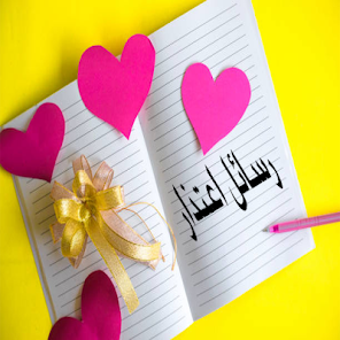 رسائل اعتذار